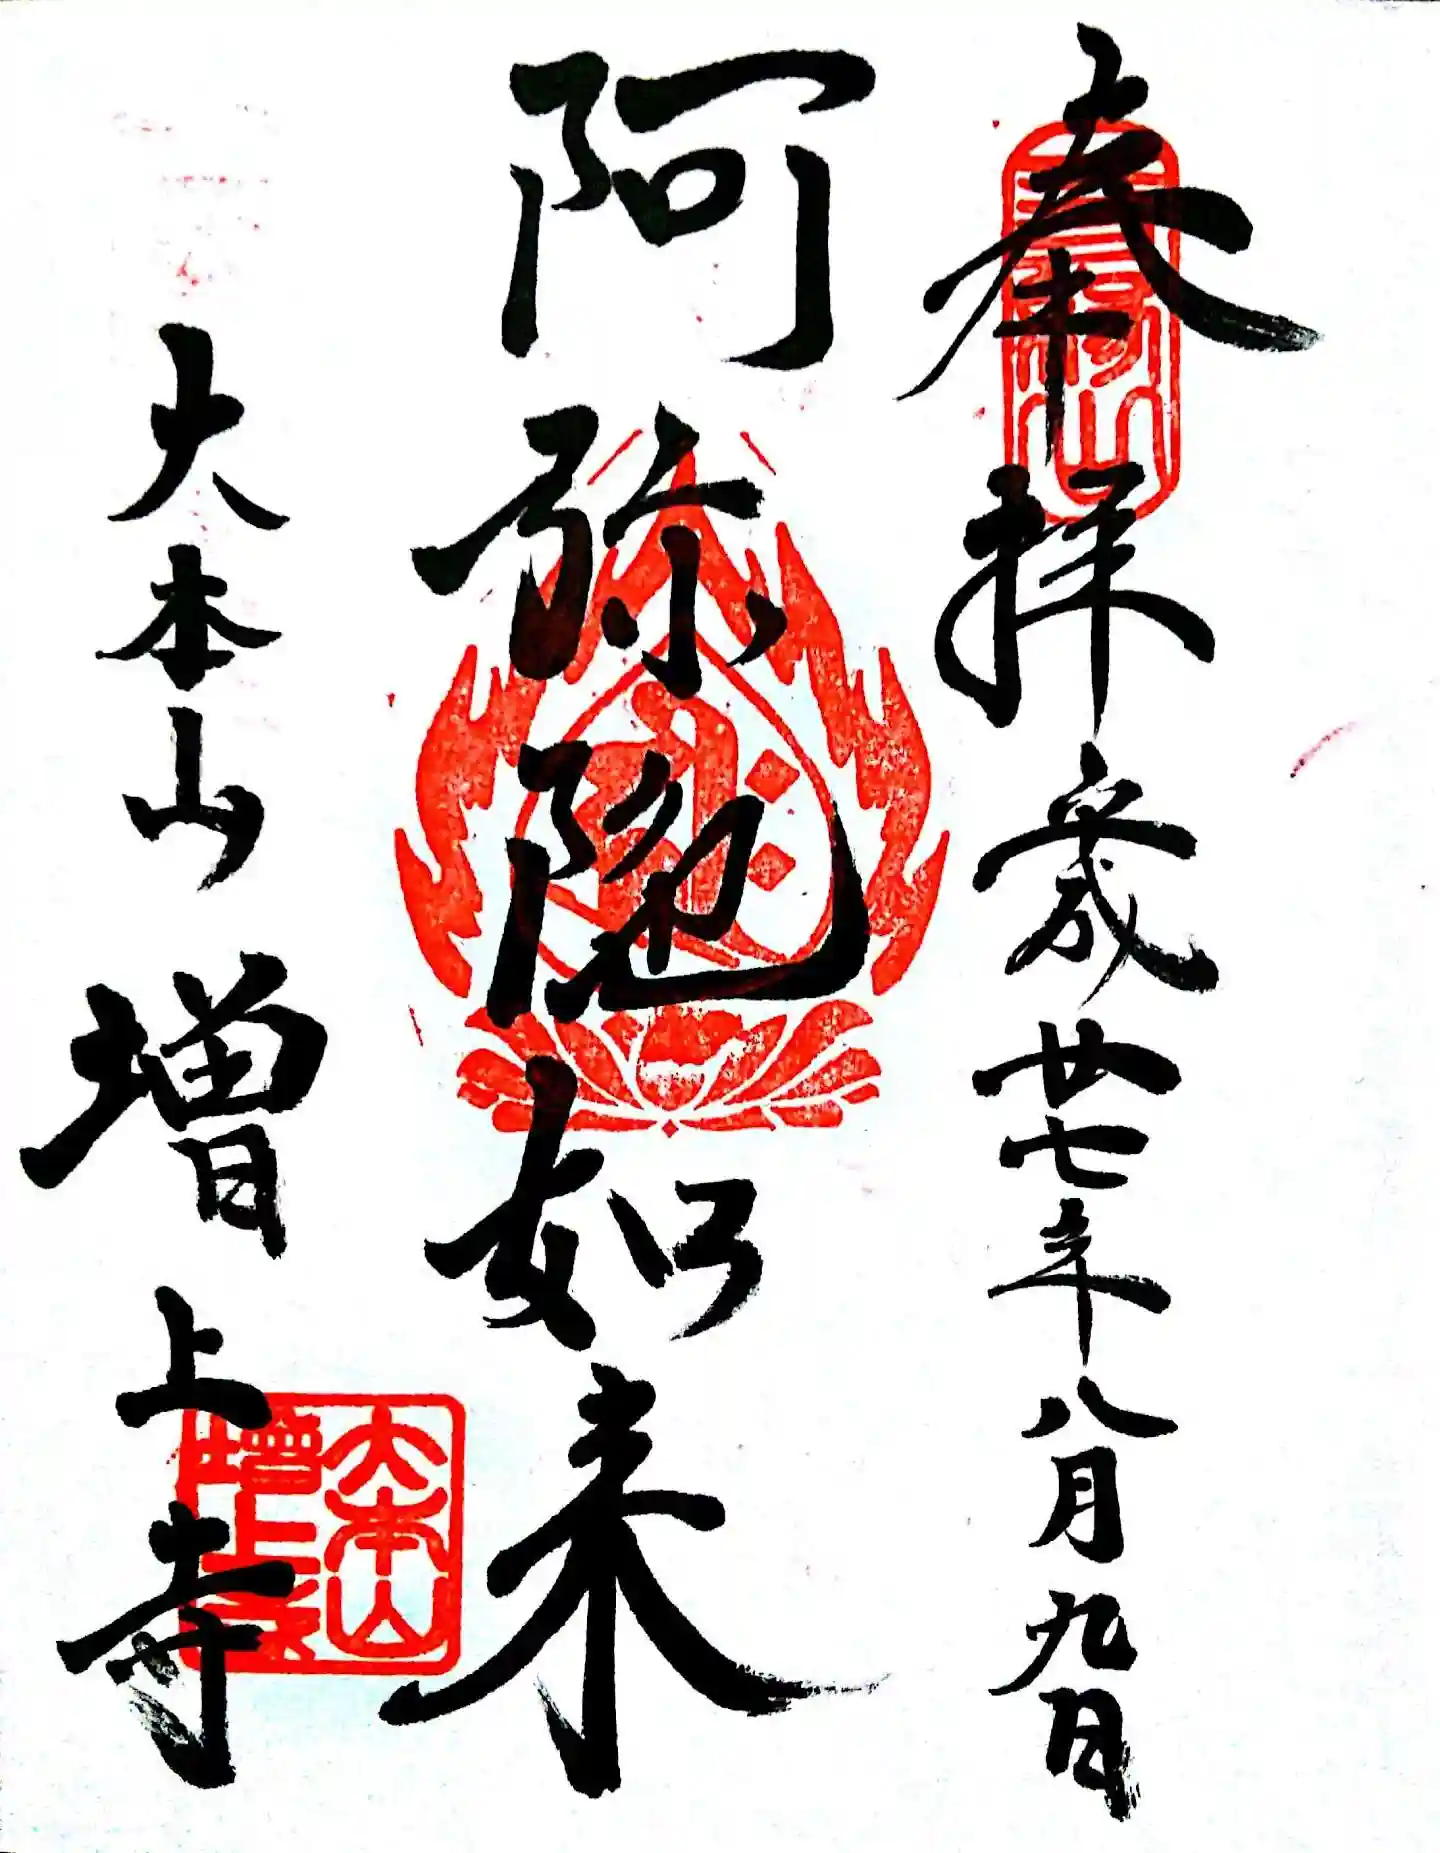 奉拝 歳廿七年八月九日
三縁山
阿弥陀如来
大本山 増上寺
大本山
增上寺